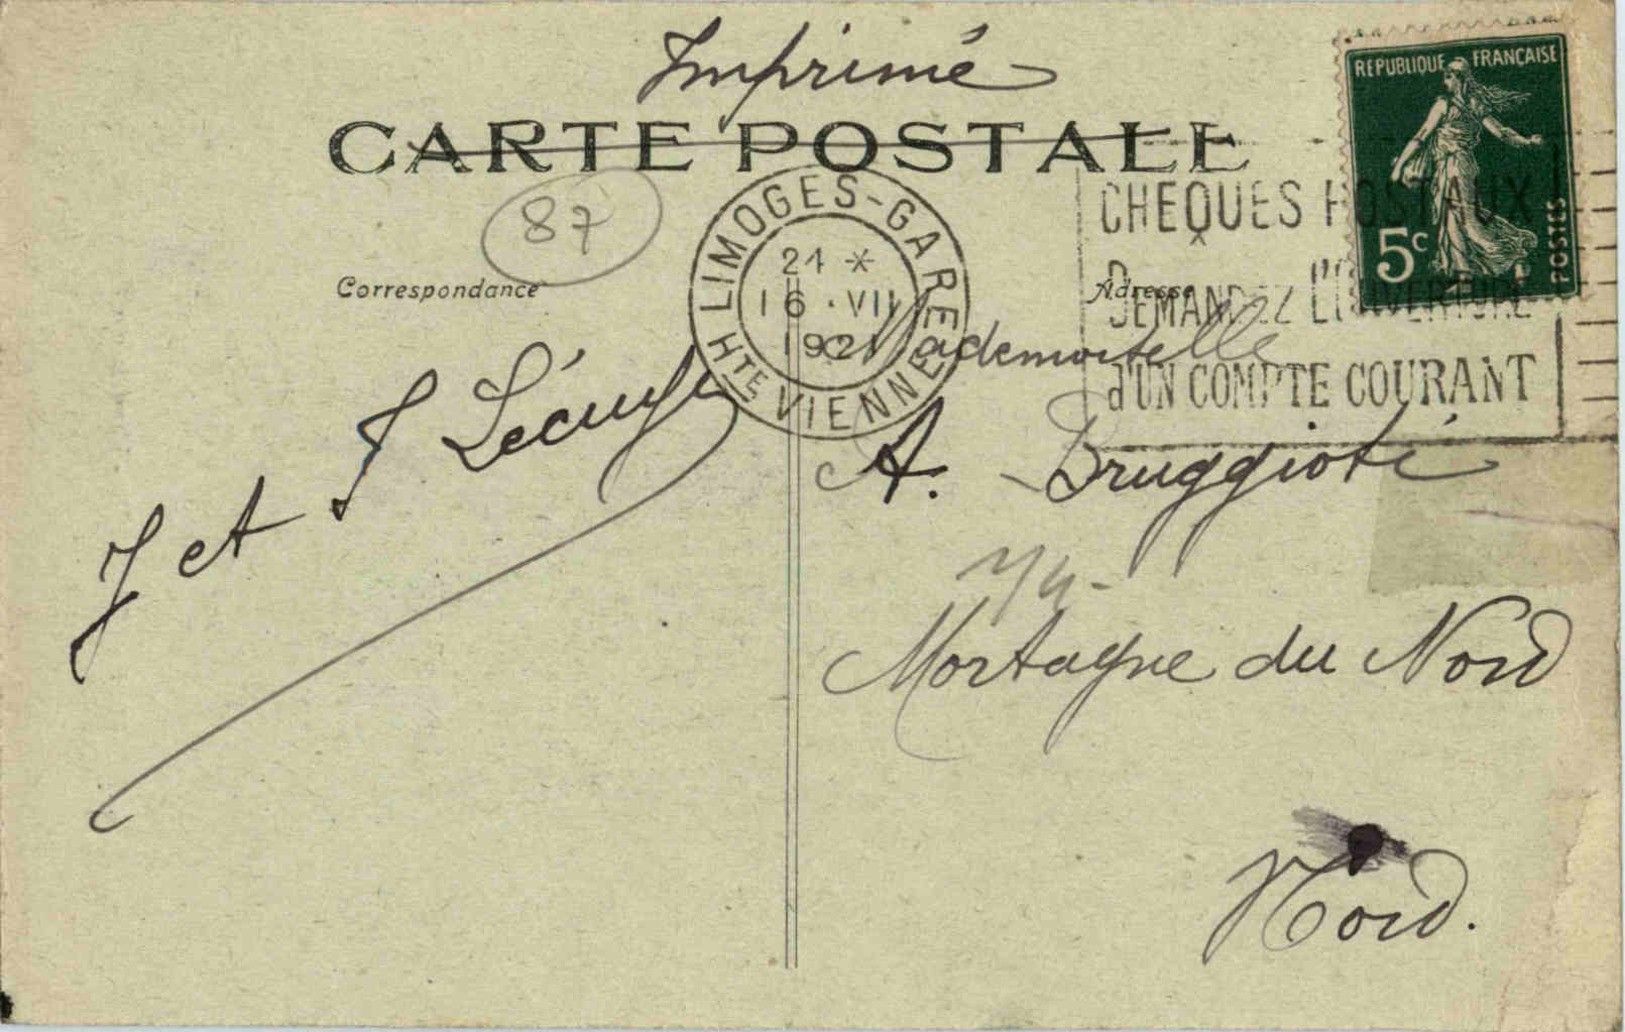 Imprimé
CARTE POSTALE
REPUBLIQUE FRANÇAISE
5c
POSTES
87
LIMOGES-GARE
21 *
16 · VII
1921
HTE VIENNE
CHEQUES POSTAUX
DEMANDEZ L'OUVERTURE
d'UN COMPTE COURANT
Correspondance
Adresse
J et J
Mademoiselle
A. Bruggioti
Mortagne du Nord
Nord.